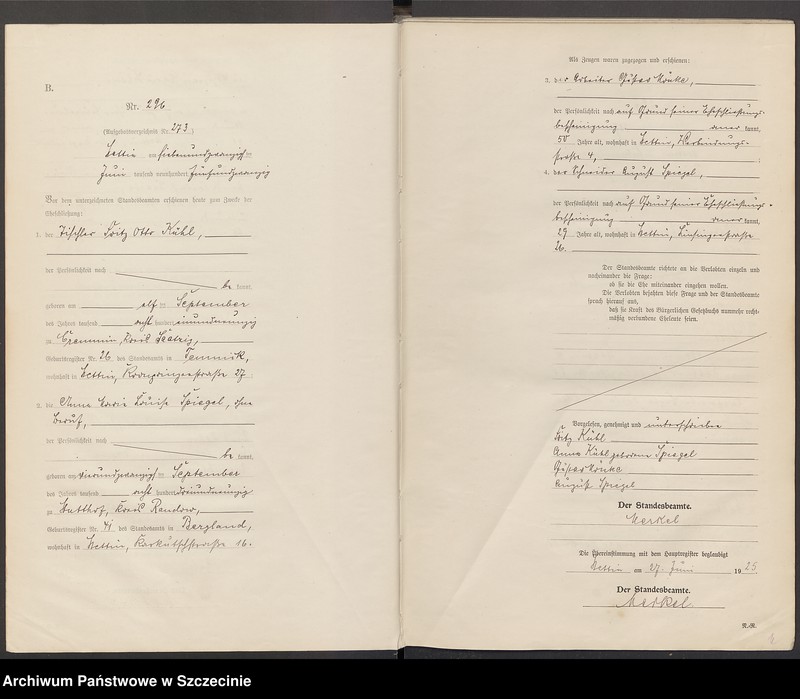 B.
Nr. 296
(Aufgebotsverzeichnis Nr. 273.)
Stettin am siebenundzwanzigsten
Juni tausend neunhundert fünfundzwanzig
Vor dem unterzeichneten Standesbeamten erschienen heute zum Zwecke der
Eheschließung:
1. der Tischler Fritz Otto Kühl,
der Persönlichkeit nach
be kannt,
geboren am elften September
des Jahres tausend acht hundert einundneunzig
zu Cremmin, Kreis Saatzig,
Geburtsregister Nr. 26 des Standesamts in Temnick,
wohnhaft in Stettin, Kronprinzenstraße 27
2. die Anna Marie Louise Spiegel, ohne
Beruf,
der Persönlichkeit nach
be kannt,
geboren am vierundzwanzigsten September
des Jahres tausend acht hundert dreiundneunzig
zu Kreis Randow,
Geburtsregister Nr. 41 des Standesamts in Bergland,
wohnhaft in Stettin, Karkutschstraße 16.
Als Zeugen waren zugezogen und erschienen:
3. der Arbeiter Gustav
der Persönlichkeit nach auf Grund seiner Eheschließungs-
bescheinigung aner kannt,
50 Jahre alt, wohnhaft in Stettin, Verbindungs-
straße 4,
4. der Schneider August Spiegel,
der Persönlichkeit nach auf Grund seiner Eheschließungs-
bescheinigung aner kannt,
29 Jahre alt, wohnhaft in Stettin,
26.
Der Standesbeamte richtete an die Verlobten einzeln und
nacheinander die Frage:
ob sie die Ehe miteinander eingehen wollen.
Die Verlobten bejahten diese Frage und der Standesbeamte
sprach hierauf aus,
daß sie kraft des Bürgerlichen Gesetzbuchs nunmehr recht-
mäßig verbundene Eheleute seien.
Vorgelesen, genehmigt und unterschrieben
Fritz Kühl
Anna Kühl geborene Spiegel
Gustav
August Spiegel
Der Standesbeamte.
Merkel
Die Übereinstimmung mit dem Hauptregister beglaubigt
Stettin am 27. Juni 1925.
Der Standesbeamte.
Merkel
N.-R.
Archiwum Państwowe w Szczecinie